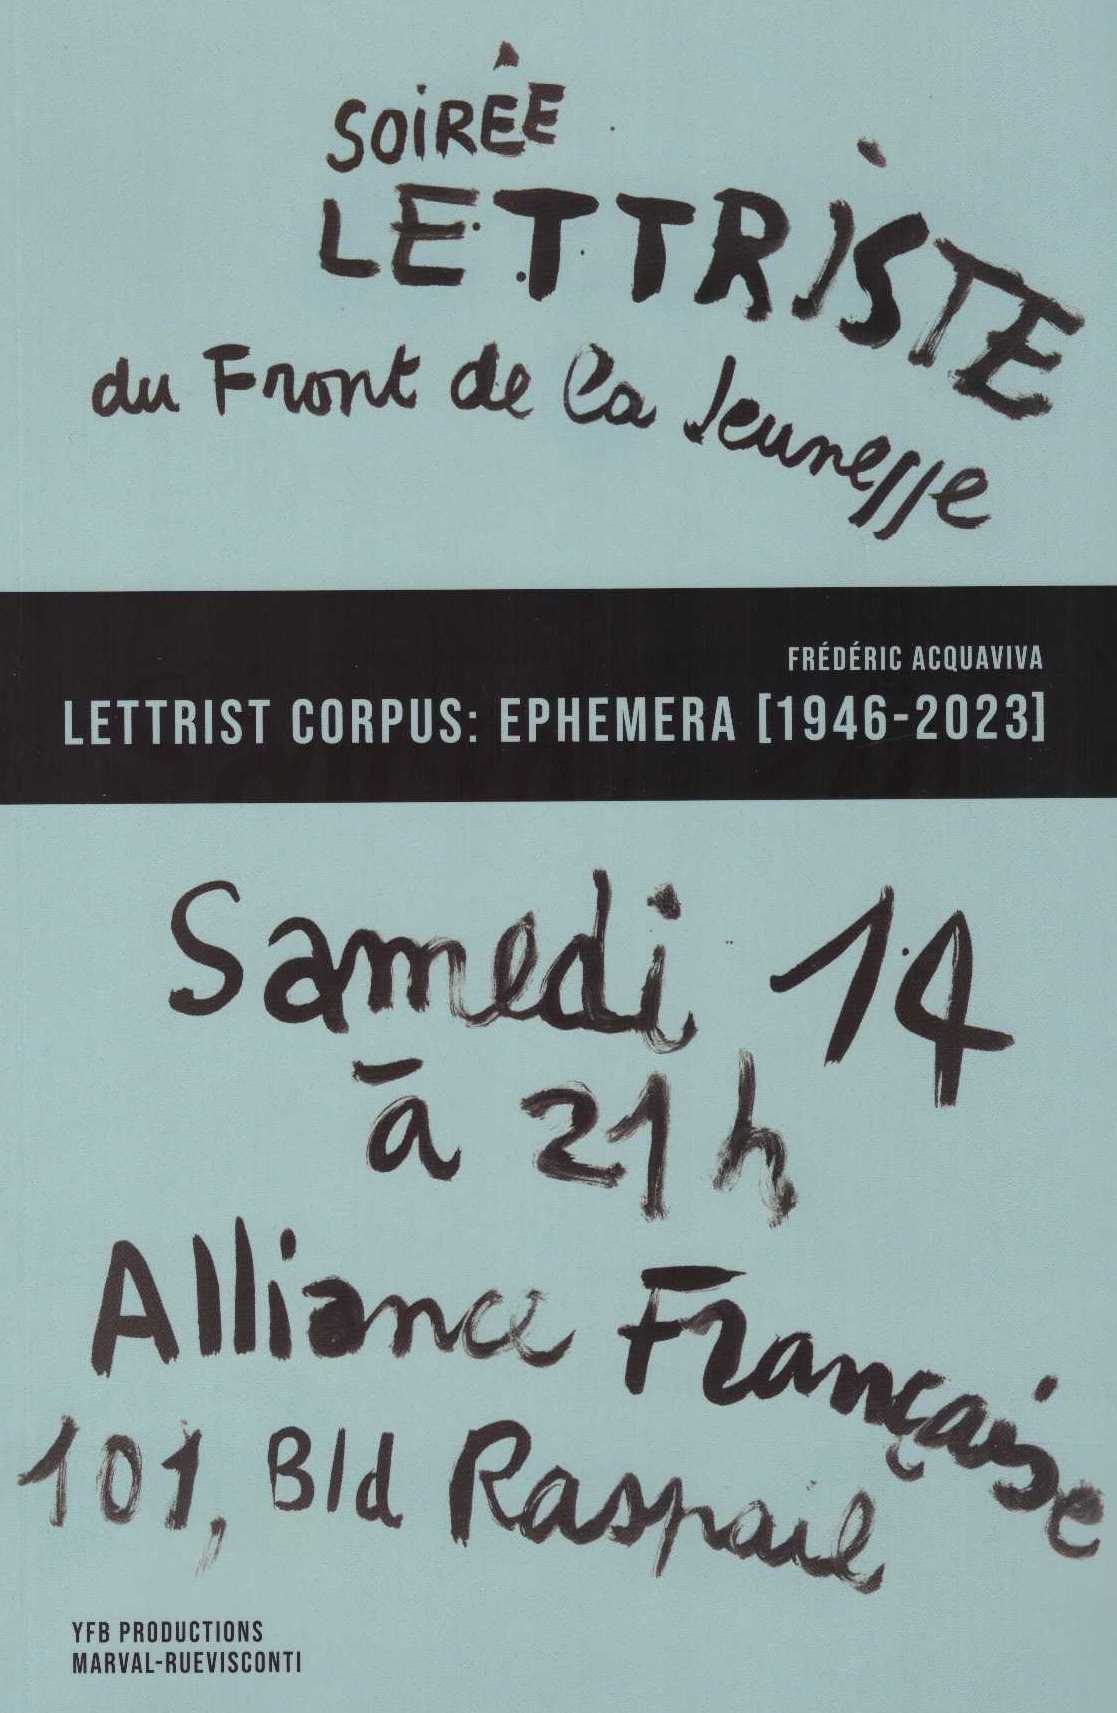 SOIRÉE
LETTRISTE
du Front de la Jeunesse
FRÉDÉRIC ACQUAVIVA
LETTRIST CORPUS: EPHEMERA [1946-2023]
Samedi 14
à 21h
Alliance Française
101, Bld Raspail
YFB PRODUCTIONS
MARVAL-RUEVISCONTI